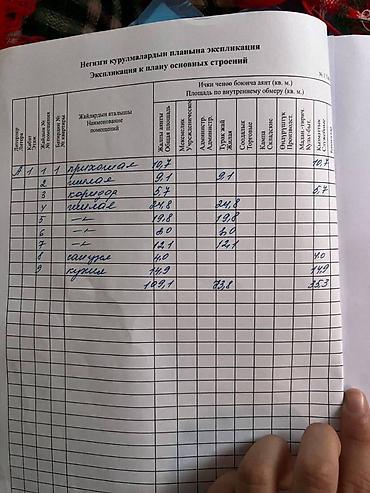 Негизги курулмалардын планына экспликация
Экспликация к плану основных строений
Ички ченею боюнча аянт (кв. м.)
Площадь по внутреннему обмеру (кв. м.)
Литерлер Литера
Кабат Этаж
Жайдын № № помещения
Батирдин № № квартиры
Жайлардын аталышы Наименование помещений
Жалпы аянты Общая площадь
Мекемелик Учрежденческие
Администр. Администр.
Турак жай Жилая
Соодалык Торговые
Кампа Складские
Өндүрүштүк Производст.
А 1 1 1 прихожая 10,7 10,7
2 жилая 9,1 9,1
3 коридор 5,7 5,7
4 жилая 24,8 24,8
5 -"- 19,8 19,8
6 -"- 8,0 8,0
7 -"- 12,1 12,1
8 санузел 4,0 4,0
9 кухня 14,9 14,9
109,1 73,8 35,3